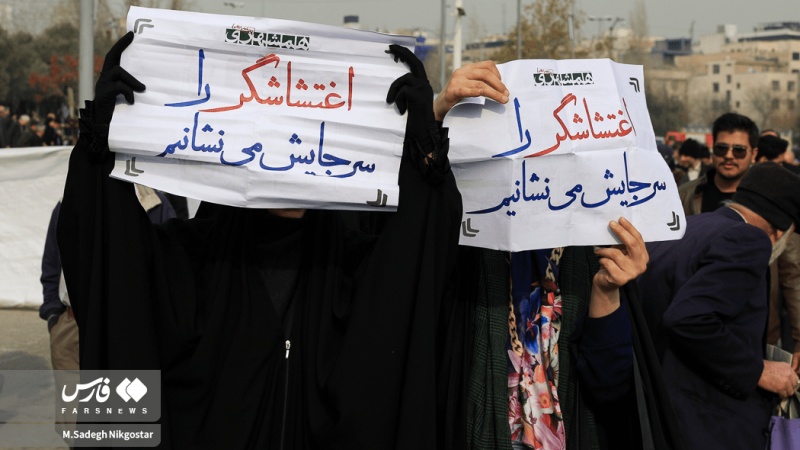 همشهری
اغتشاشگر را
سرجایش می نشانیم
همشهری
اغتشاشگر را
سرجایش می نشانیم
فارس
FARSNEWS
M.Sadegh Nikgostar